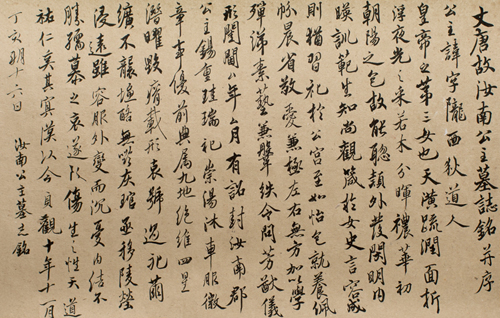 大唐故汝南公主墓誌銘 并序
公主諱字隴西狄道人
皇帝之第三女也天潢疏潤面折
浮夜光之采若木分暉穠華初
朝陽之色故能聰穎外發閑明內
暎訓範生知尚觀箴於女史言容成
則猶習礼於公宮至如怡色就養佩
帉晨省敬愛兼極左右無方加以學
殫綈素藝兼鞶紩令問芳猷儀
形閨閫八年月有詔封汝南郡
公主錫重珪瑞礼崇湯沐車服徽
章事優前典属九地絕維四星
潛曜毀瘠載形哀號過礼繭
纊不襲塩酪無嗞灰琯亟移陵塋
浸遠雖容服外變而沉憂內結不
勝孺慕之哀遂成傷生之性天道
祐仁奚其冥漠以今貞觀十年十一月
丁亥朔十六日
汝南公主墓之銘